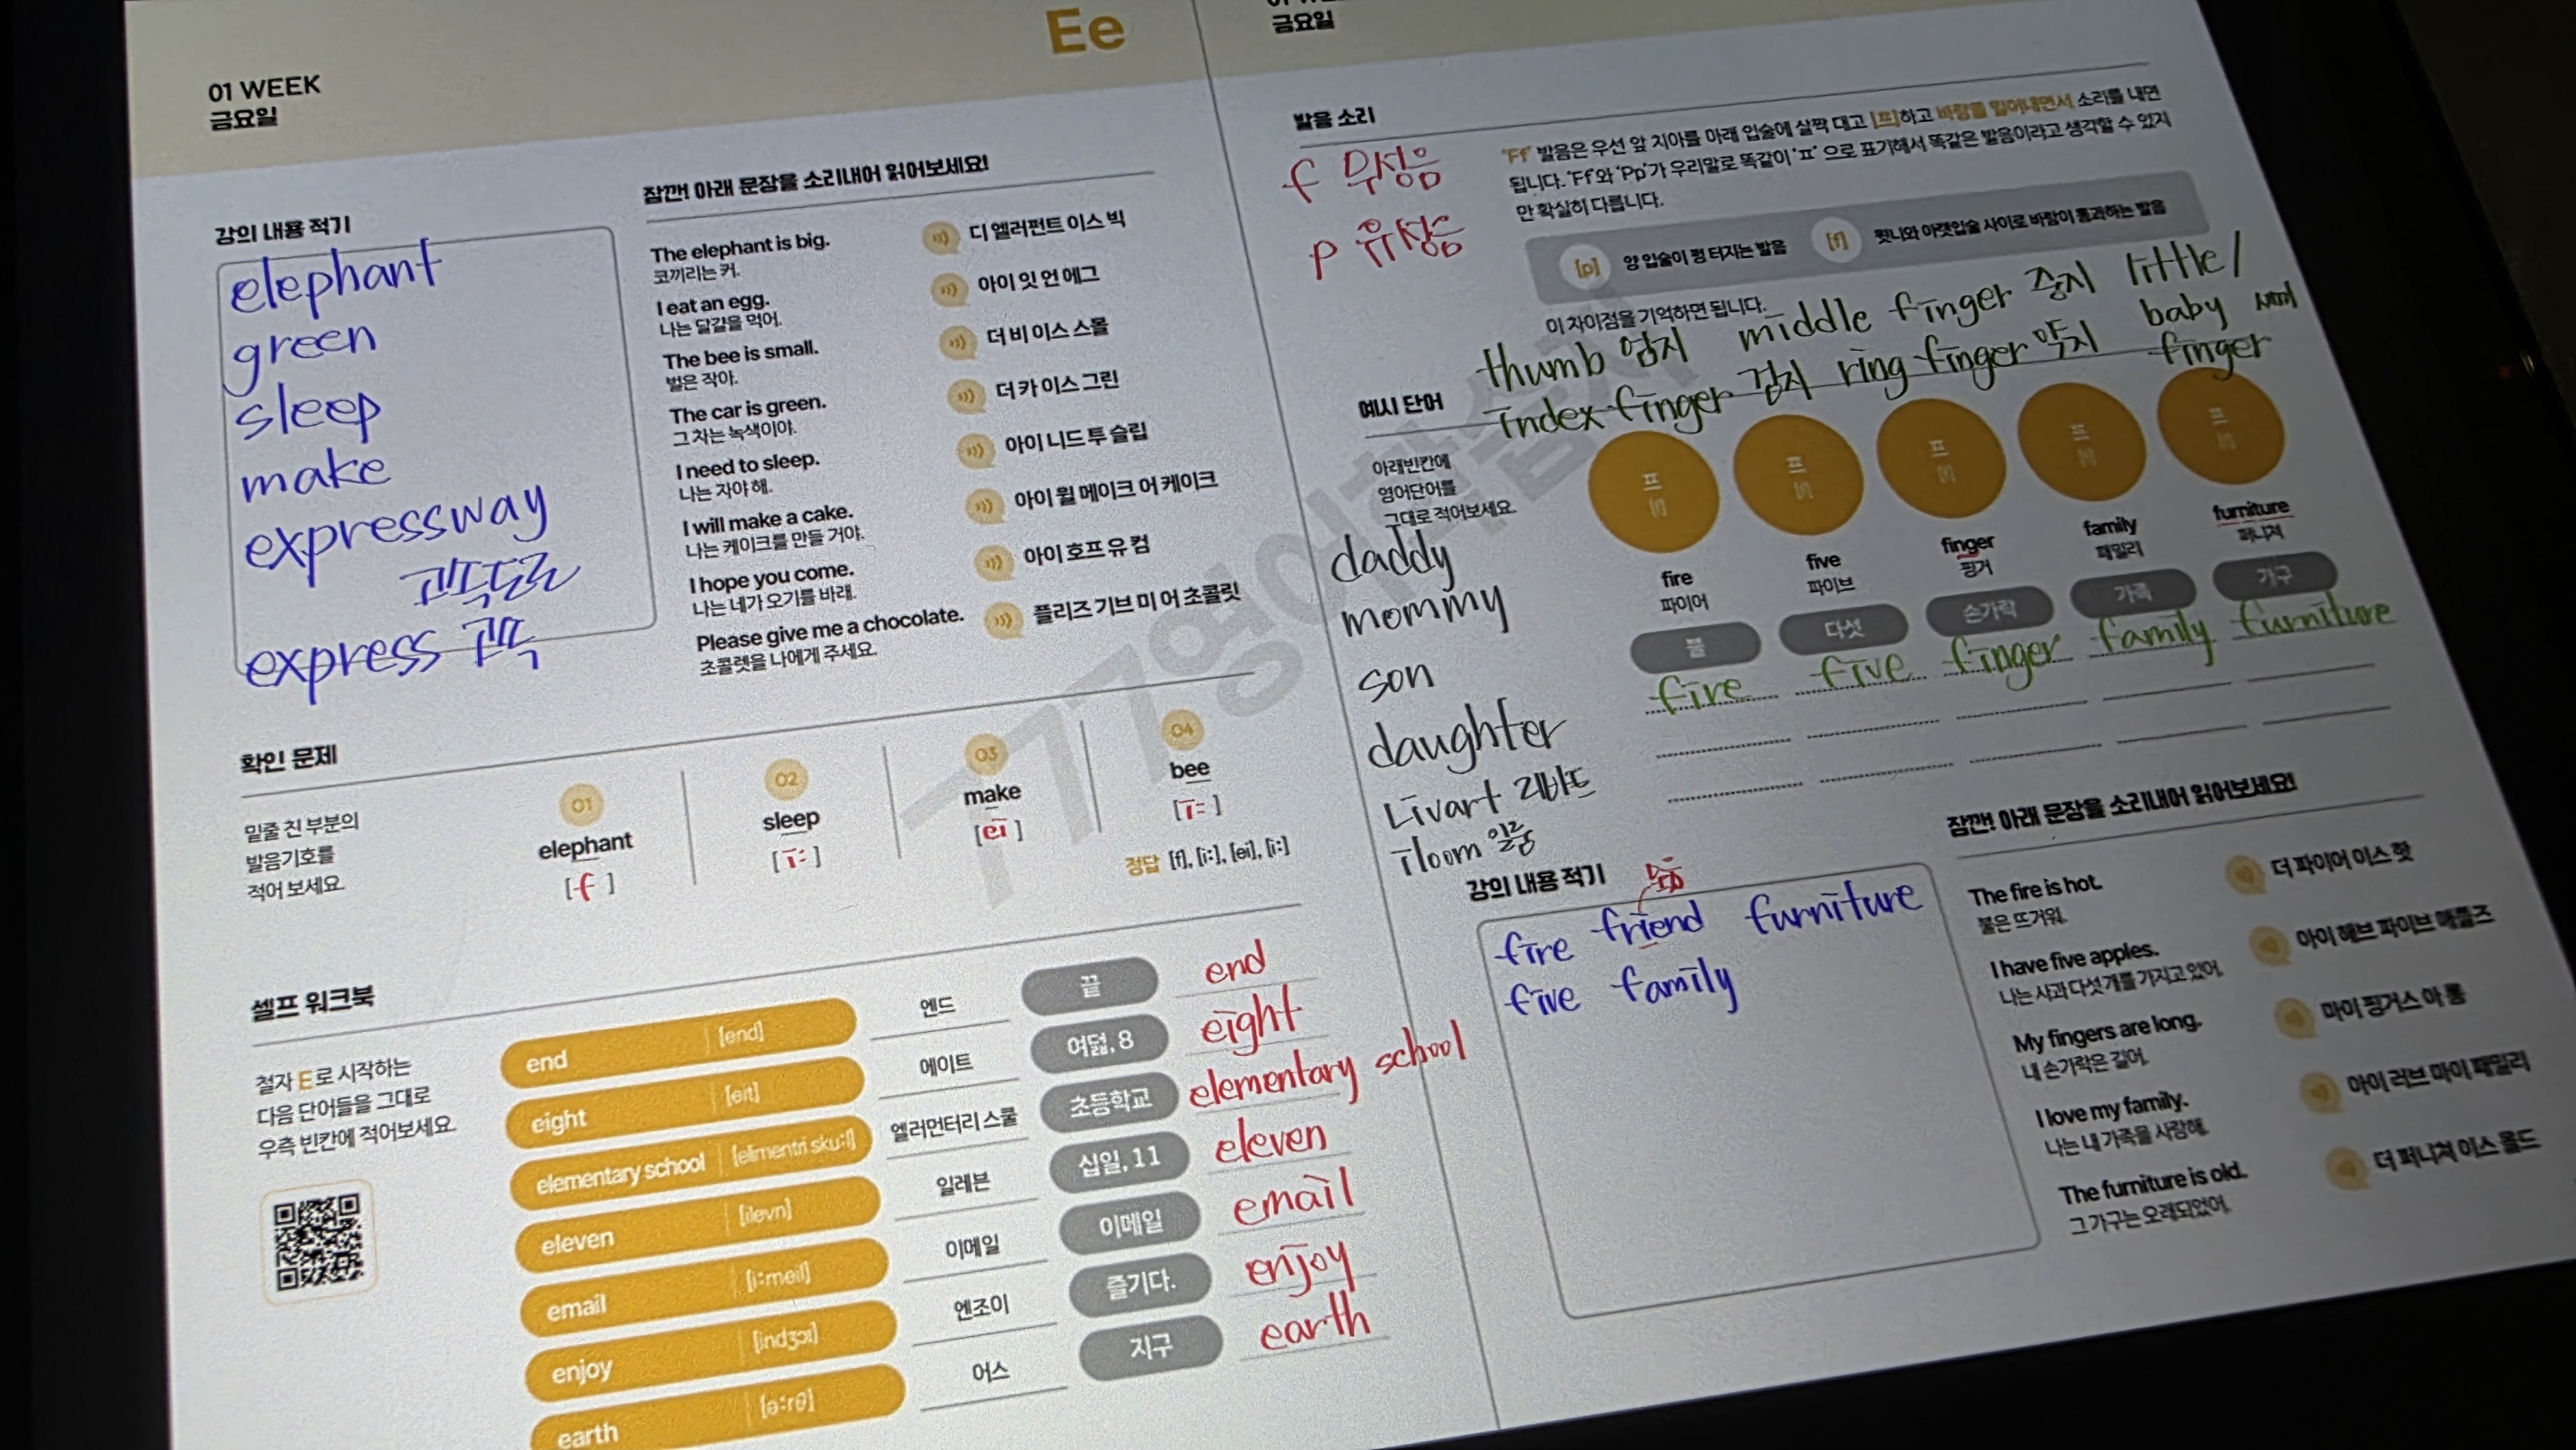 Ee
01 WEEK
금요일
강의 내용 적기
elephant
green
sleep
make
expressway
고속도로
express 고속
잠깐! 아래 문장을 소리내어 읽어보세요!
The elephant is big.
코끼리는 커.
디 엘러펀트 이스 빅
I eat an egg.
나는 달걀을 먹어.
아이 잇 언 에그
The bee is small.
벌은 작아.
더 비 이스 스몰
The car is green.
그 차는 녹색이야.
더 카 이스 그린
I need to sleep.
나는 자야 해.
아이 니드 투 슬립
I will make a cake.
나는 케이크를 만들 거야.
아이 윌 메이크 어 케이크
I hope you come.
나는 네가 오기를 바래.
아이 호프 유 컴
Please give me a chocolate.
초콜렛을 나에게 주세요.
플리즈 기브 미 어 초콜릿
확인 문제
밑줄 친 부분의
발음기호를
적어 보세요.
01
elephant
[f]
02
sleep
[i:]
03
make
[ei]
04
bee
[i:]
정답 [f], [i:], [ei], [i:]
셀프 워크북
철자 E로 시작하는
다음 단어들을 그대로
우측 빈칸에 적어보세요.
end [end] 엔드 끝 end
eight [eit] 에이트 여덟, 8 eight
elementary school [elimentri sku:l] 엘러먼터리 스쿨 초등학교 elementary school
eleven [ilevn] 일레븐 십일, 11 eleven
email [i:meil] 이메일 이메일 email
enjoy [indʒɔi] 엔조이 즐기다. enjoy
earth [ə:rθ] 어스 지구 earth
금요일
발음 소리
f 무성음
p 유성음
'Ff' 발음은 우선 앞 치아를 아래 입술에 살짝 대고 [프]하고 바람을 밀어내면서 소리를 내면
됩니다. 'Ff'와 'Pp'가 우리말로 똑같이 'ㅍ' 으로 표기해서 똑같은 발음이라고 생각할 수 있지
만 확실히 다릅니다.
[p] 양 입술이 펑 터지는 발음 [f] 윗니와 아랫입술 사이로 바람이 통과하는 발음
이 차이점을 기억하면 됩니다.
thumb 엄지 middle finger 중지 little/
baby finger
index finger 검지 ring finger 약지
예시 단어
아래빈칸에
영어단어를
그대로 적어보세요.
프 [f] 프 [f] 프 [f] 프 [f] 프 [f]
fire five finger family furniture
파이어 파이브 핑거 패밀리 퍼니쳐
불 다섯 손가락 가족 가구
fire five finger family furniture
daddy
mommy
son
daughter
Livart 리바트
iloom 일룸
강의 내용 적기
fire friend furniture
five family
잠깐! 아래 문장을 소리내어 읽어보세요!
The fire is hot.
불은 뜨거워.
더 파이어 이스 핫
I have five apples.
나는 사과 다섯개를 가지고 있어.
아이 해브 파이브 애플즈
My fingers are long.
내 손가락은 길어.
마이 핑거스 아 롱
I love my family.
나는 내 가족을 사랑해.
아이 러브 마이 패밀리
The furniture is old.
그 가구는 오래되었어.
더 퍼니쳐 이스 올드